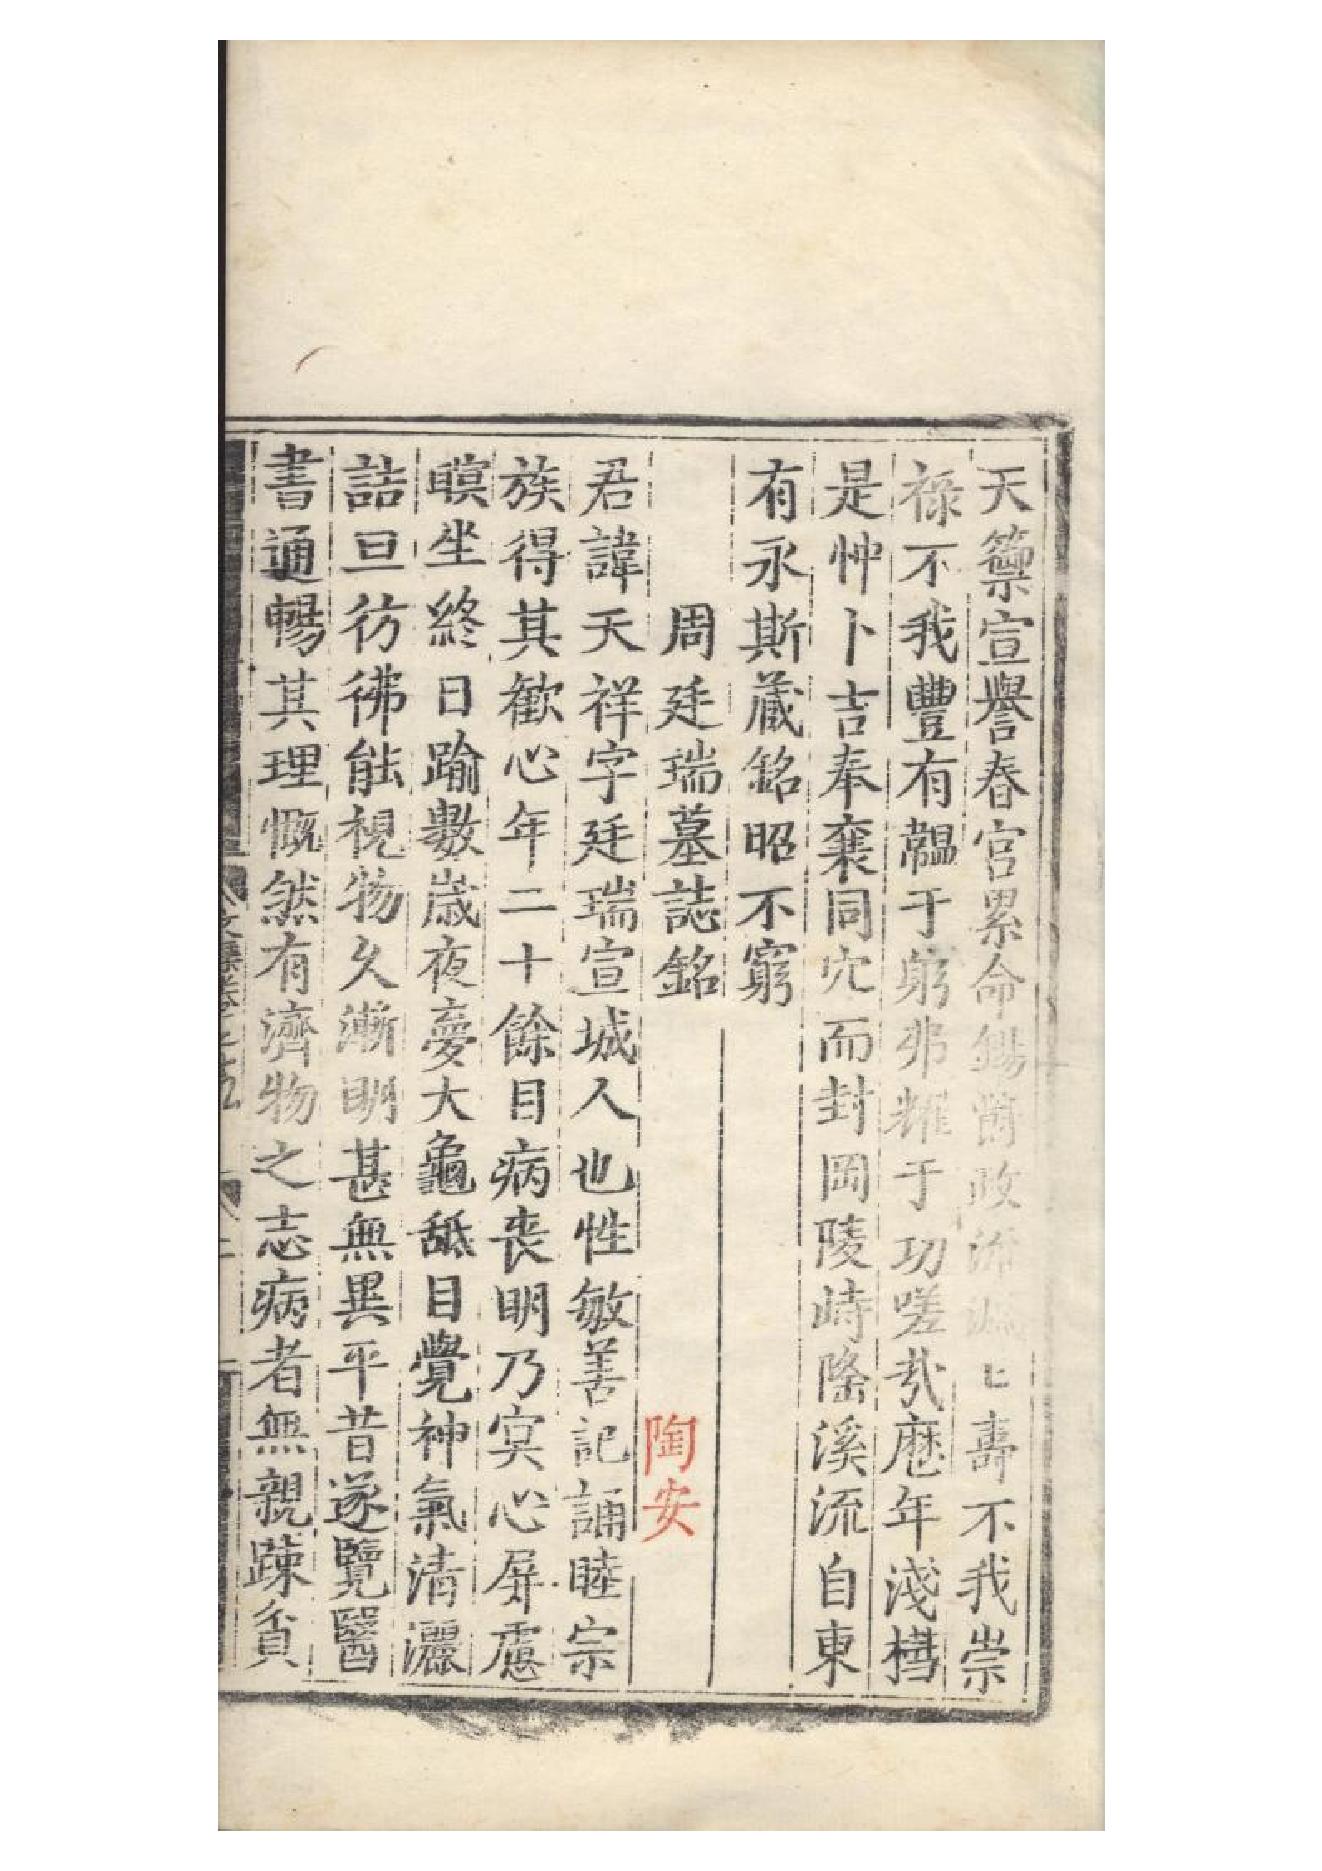 天籞宣譽春宮累命錫爵政流壽不我崇
祿不我豐有韞于躬弗耀于功嗟哉歷年淺
是忡卜吉奉襄同穴而封岡陵峙隆溪流自東
有永斯藏銘昭不窮
周廷瑞墓誌銘
陶安
君諱天祥字廷瑞宣城人也性敏善記誦睦宗
族得其歡心年二十餘目病喪明乃冥心屏慮
瞑坐終日踰數歲夜夢大龜舐目覺神氣清灑
詰旦彷彿能視物久漸明甚無異平昔遂覽醫
書通暢其理慨然有濟物之志病者無親踈貧